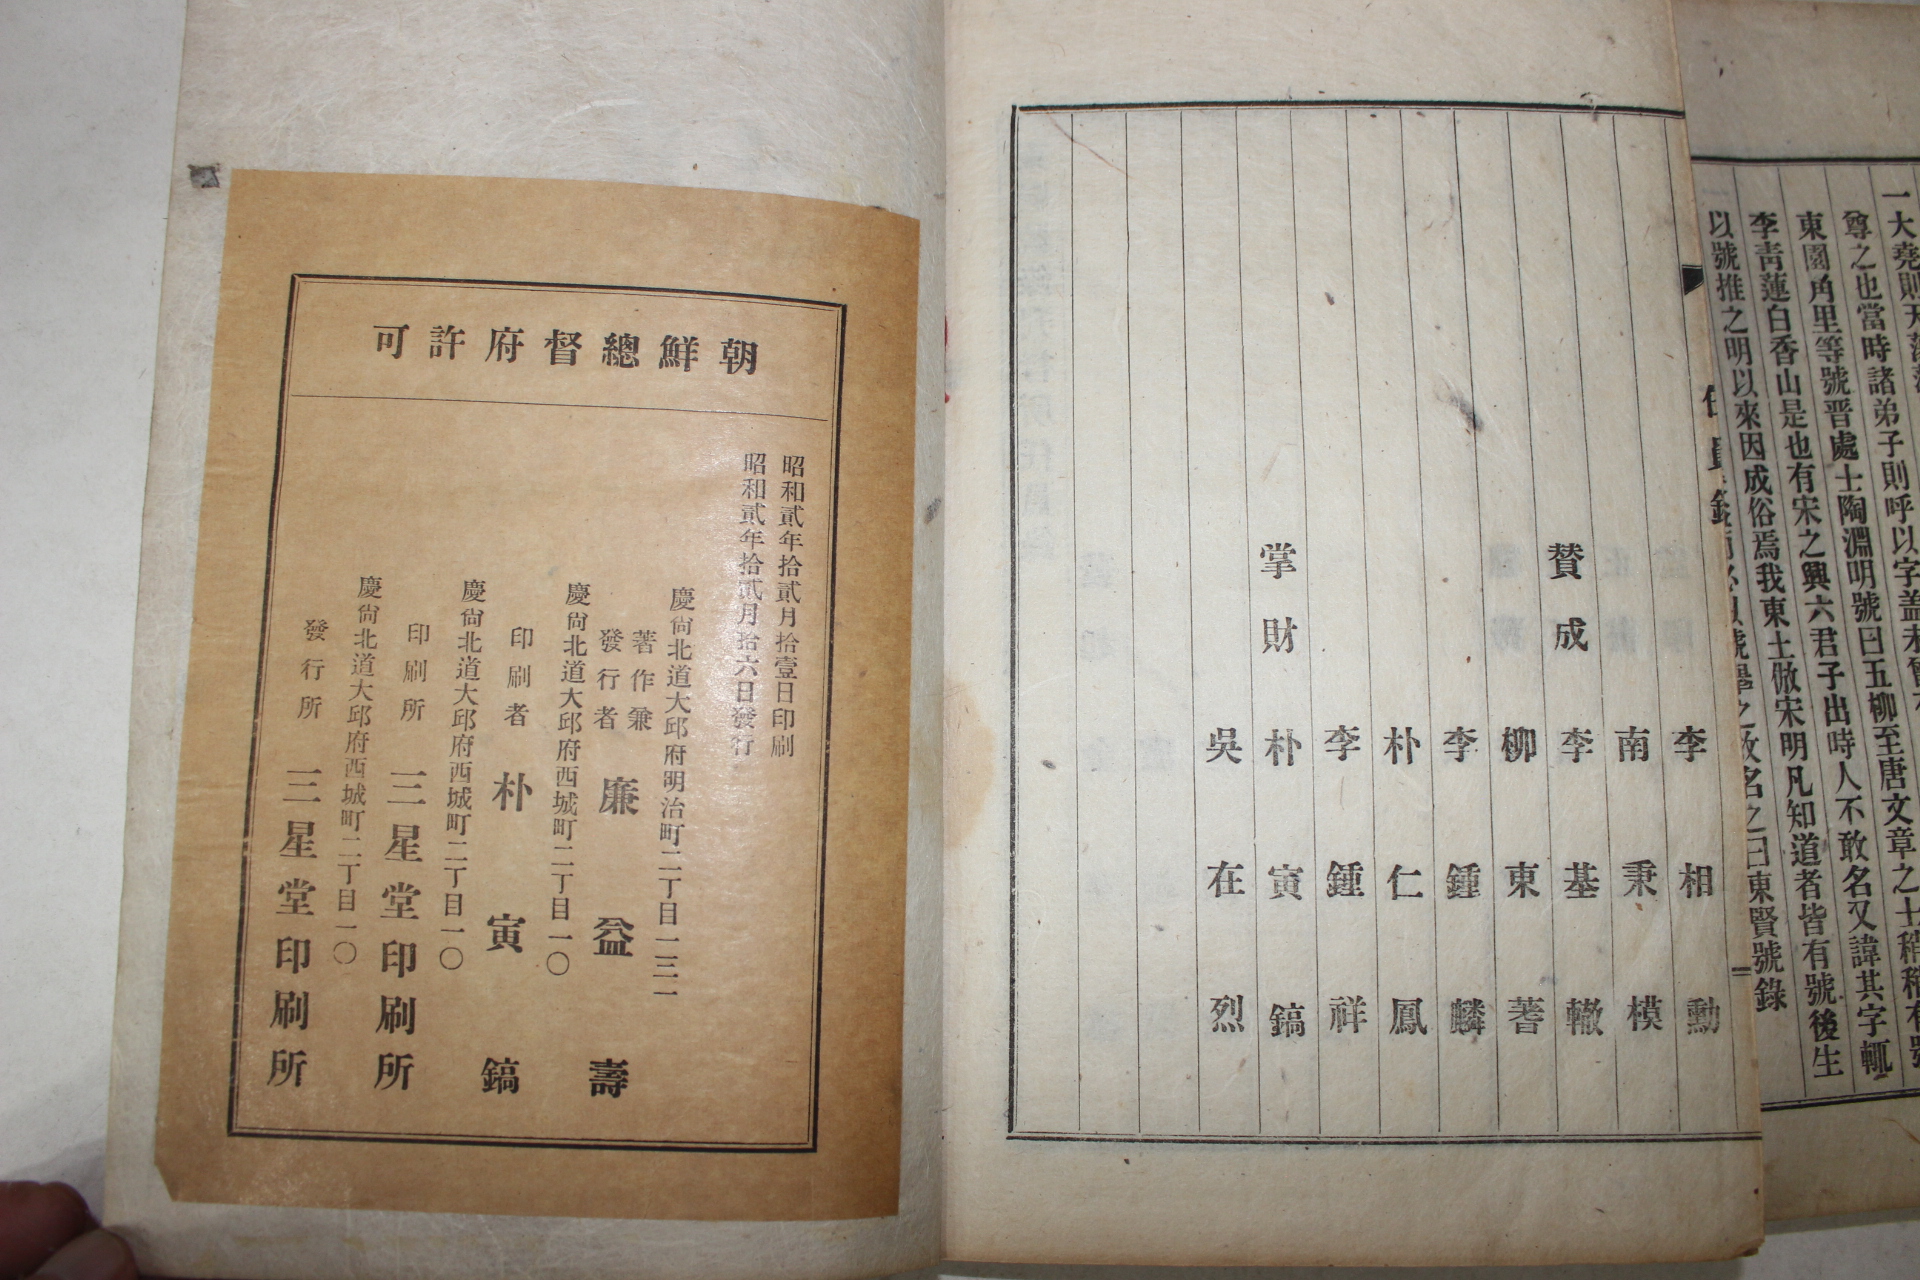 一大堯則天
尊之也當時諸弟子則呼以字盖未
東園甪里等號晋處士陶淵明號曰五柳至唐文章之士稍稍有號
李靑蓮白香山是也有宋之興六君子出時人不敢名又諱其字輒
以號推之明以來因成俗焉我東土倣宋明凡知道者皆有號後生
故名之曰東賢號錄
二
李相勳
南秉模
賛成 李基轍
柳東蓍
李鍾麟
朴仁鳳
李鍾祥
掌財 朴寅鎬
吳在烈
朝鮮總督府許可
昭和貳年拾貳月拾壹日印刷
昭和貳年拾貳月拾六日發行
慶尙北道大邱府明治町二丁目一三一
著作兼
發行者 廉益壽
慶尙北道大邱府西城町二丁目一〇
印刷者 朴寅鎬
慶尙北道大邱府西城町二丁目一〇
印刷所 三星堂印刷所
慶尙北道大邱府西城町二丁目一〇
發行所 三星堂印刷所